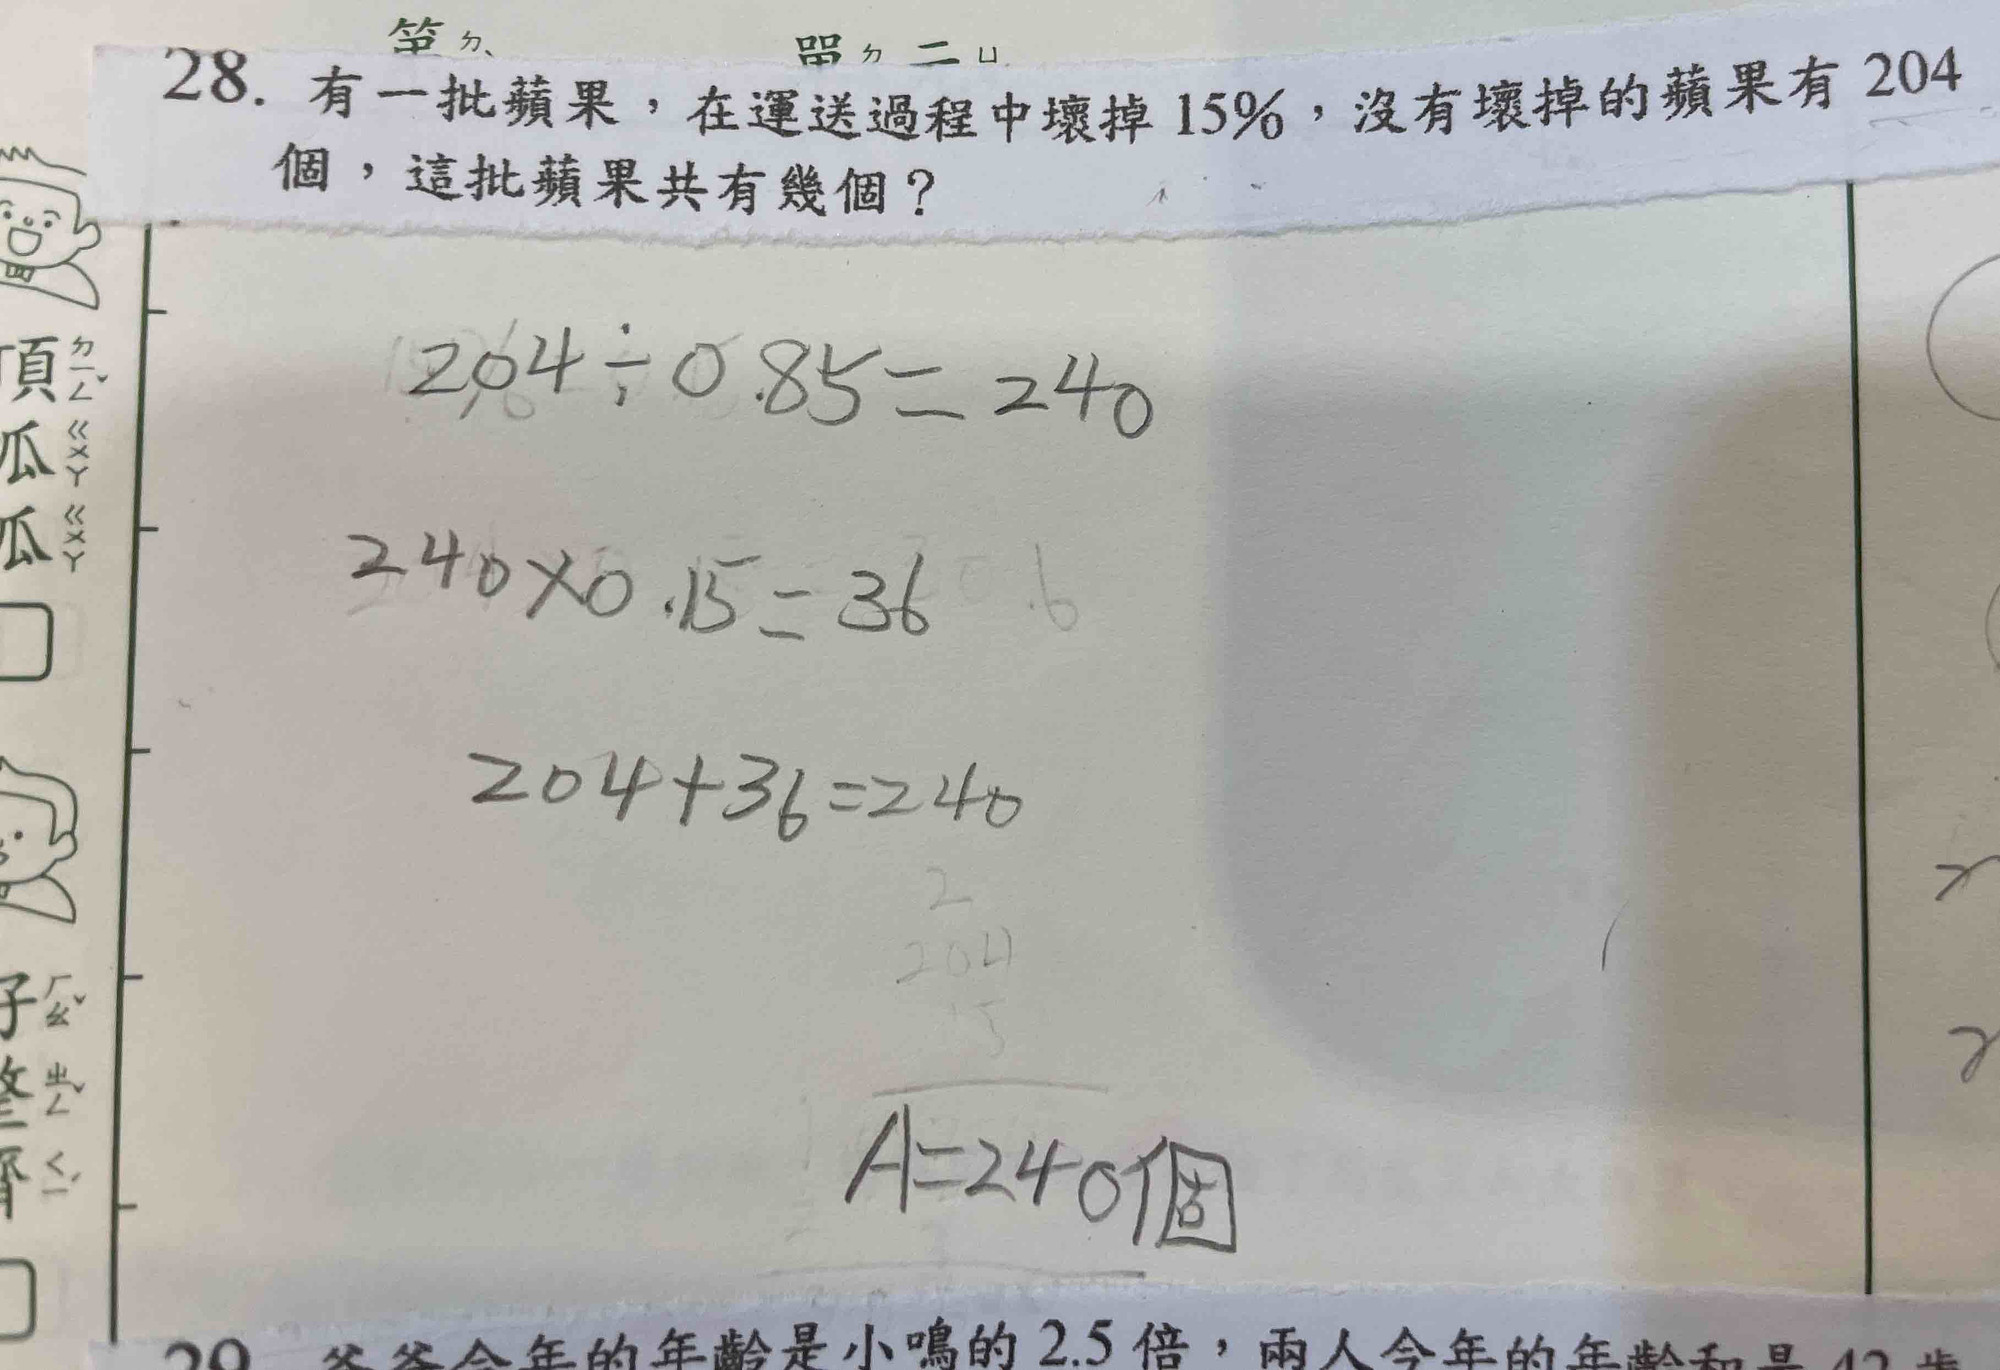 28. 有一批蘋果，在運送過程中壞掉 15%，沒有壞掉的蘋果有 204
個，這批蘋果共有幾個？
204÷0.85=240
240×0.15=36
204+36=240
2
204
15
A=240個
頂ㄉㄧㄥˇ
瓜ㄍㄨㄚ
瓜ㄍㄨㄚ
29. 爸爸今年的年齡是小鳴的 2.5 倍，兩人今年的年齡和是 42 歲